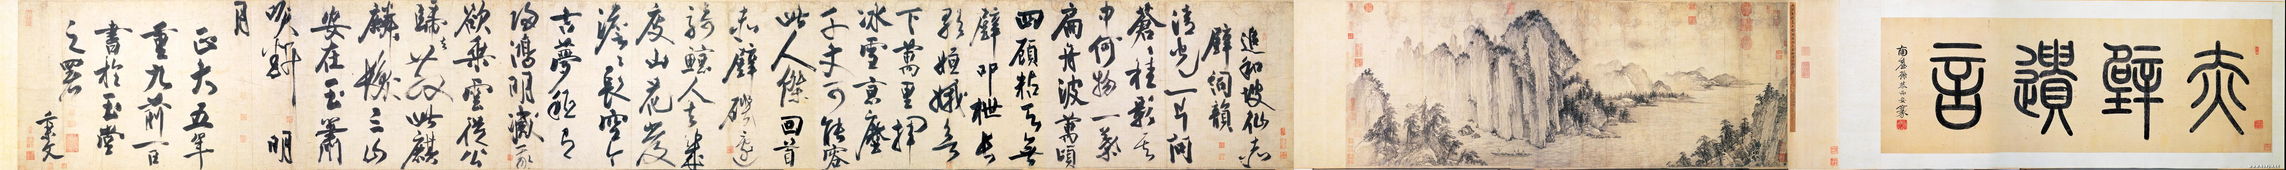 赤壁遺言
追和坡仙赤
壁詞韻
清光一片問
蒼蒼桂影其
中何物一葉
扁舟波萬頃
四顧粘天無
壁叩枻長
歌姮娥欲
下萬里揮
冰雪京塵
千丈可能容
此人傑回首
赤壁磯邊
騎鯨人去幾
度山花發
澹澹長空今
古夢秖有
歸鴻明滅我
欲乘雲從公
歸去散此麒
麟髮三山
安在玉簫
吹斷明
月
正大五年
重九前一日
書於玉堂
之署
秉文